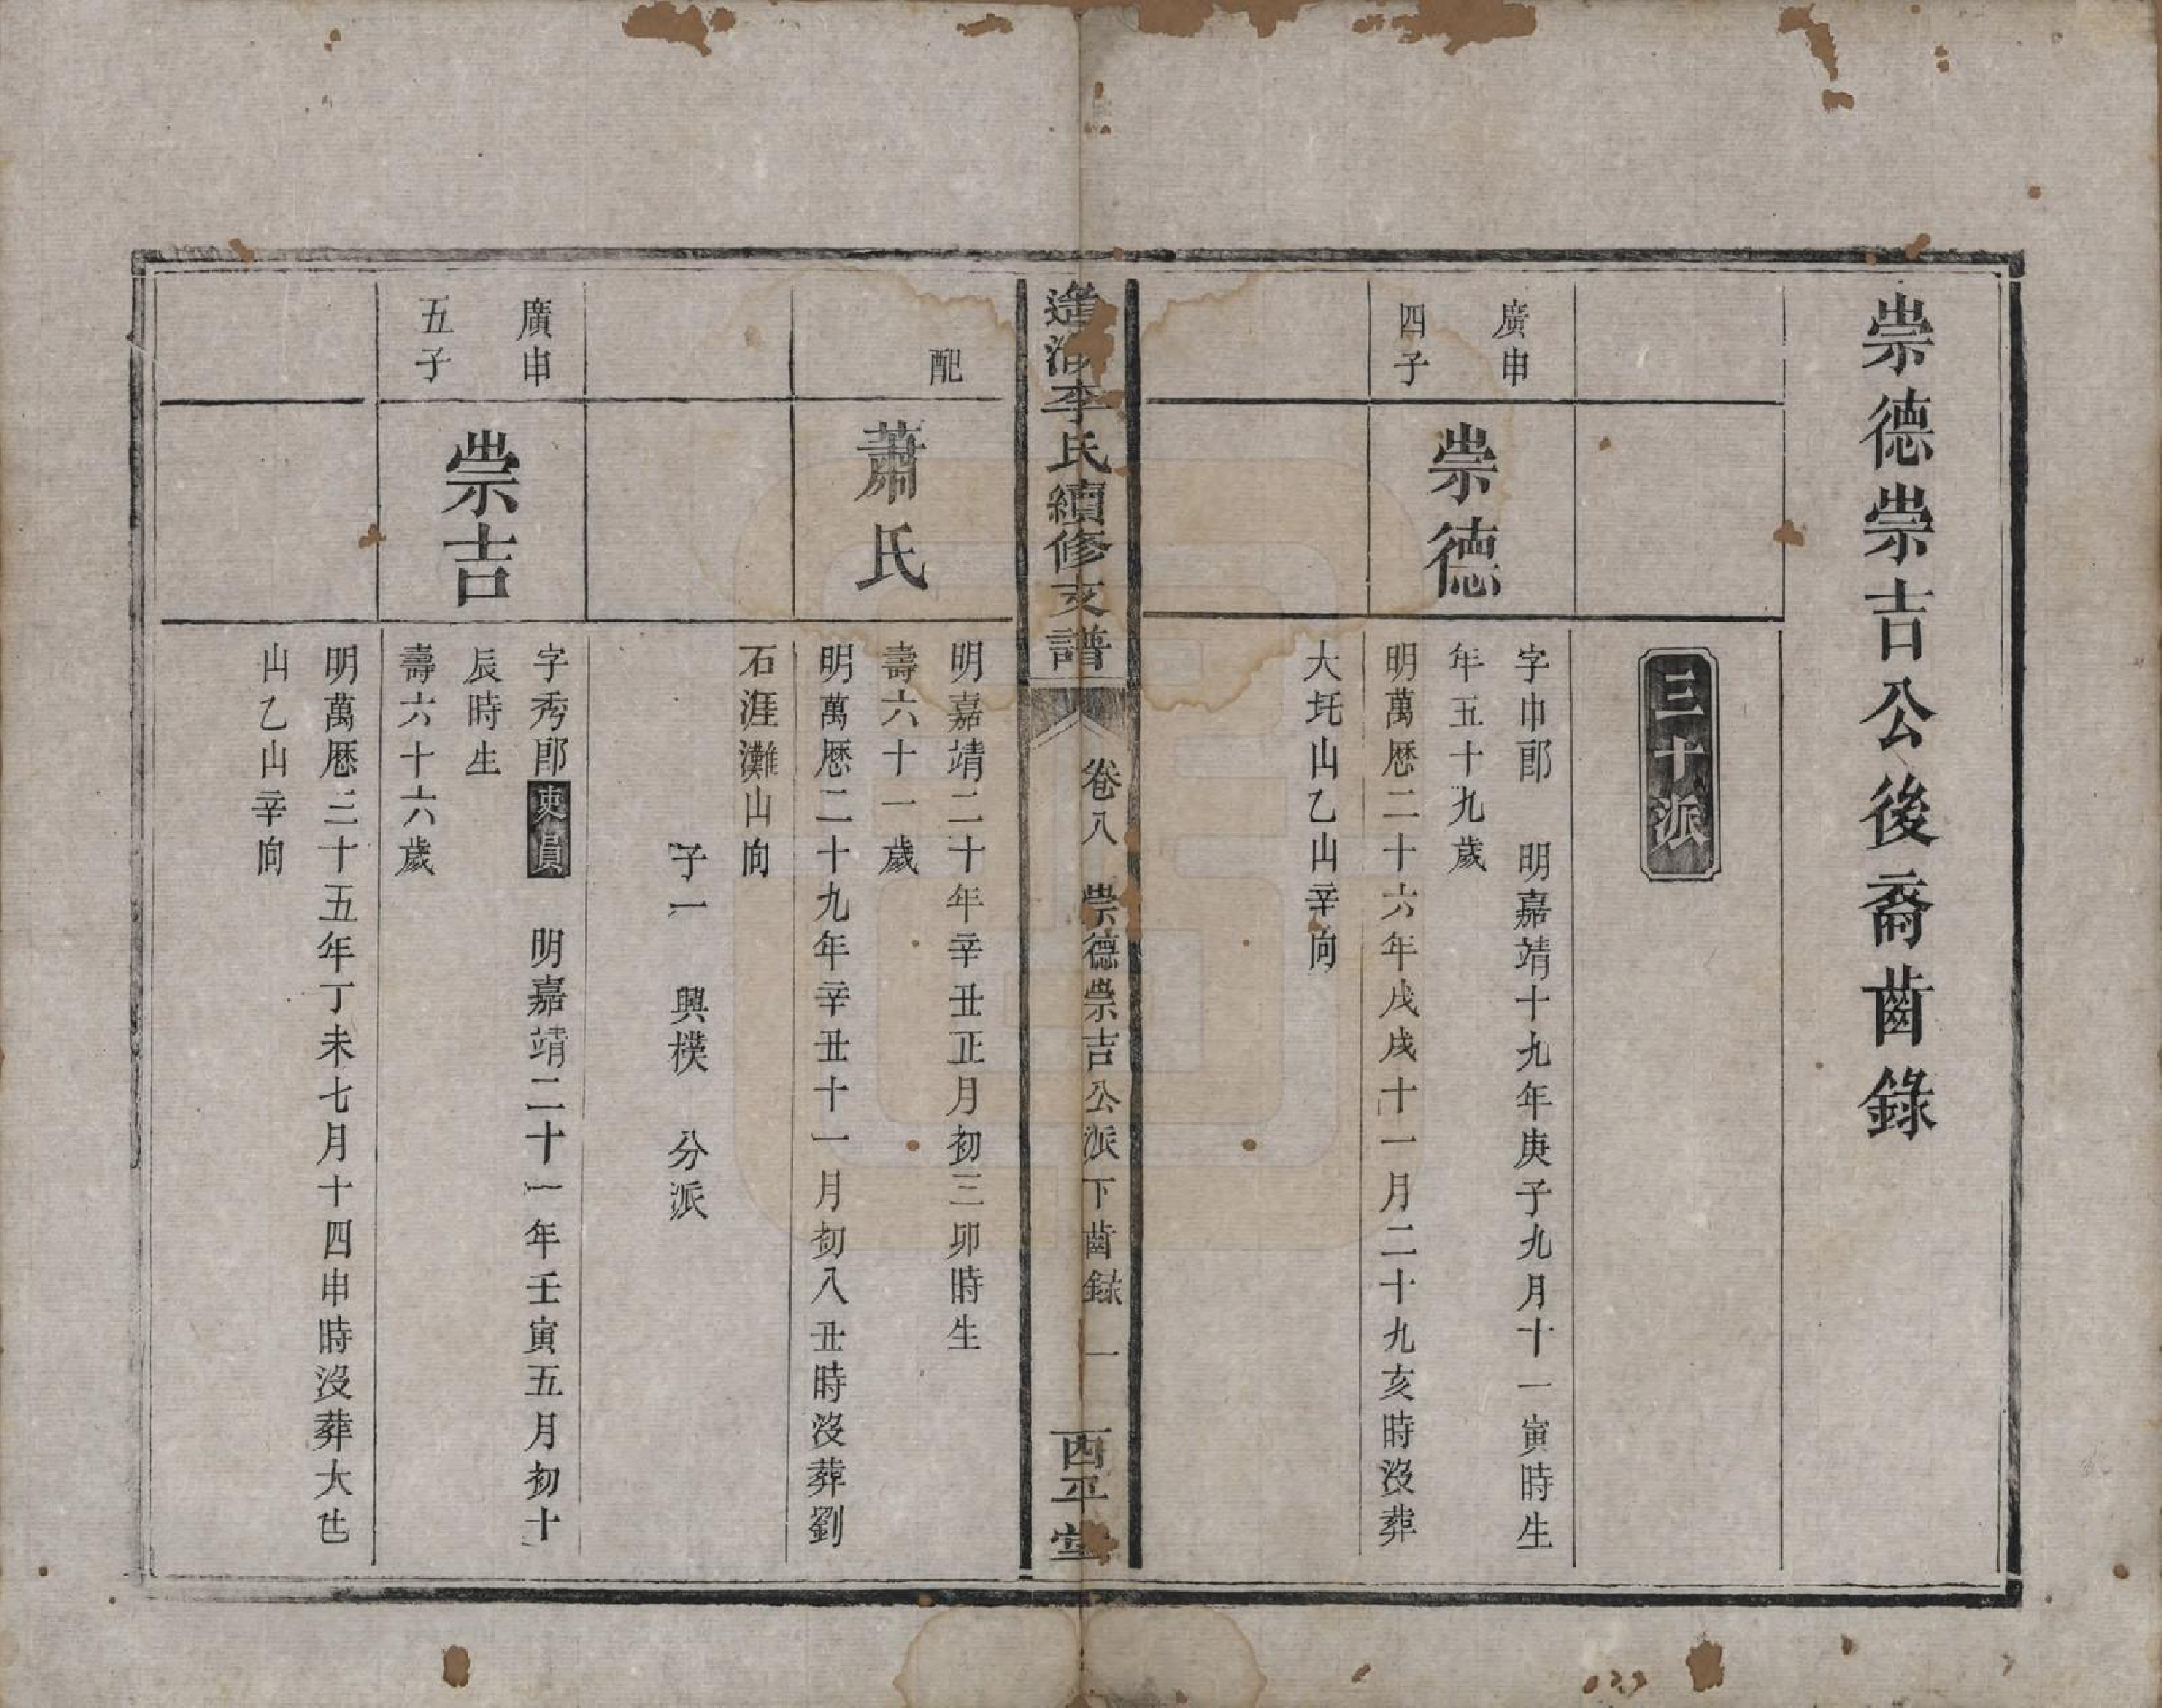 崇德崇吉公後裔齒錄
三十派
廣申
四子
崇德
字巾郎　明嘉靖十九年庚子九月十一寅時生
年五十九歲
明萬歷二十六年戊戌十一月二十九亥時沒葬
大圫山乙山辛向
李氏續修支譜
卷八
崇德崇吉公派下齒録
一
西平堂
配
蕭氏
明嘉靖二十年辛丑正月初三卯時生
壽六十一歲
明萬歷二十九年辛丑十一月初八丑時沒葬劉
石涯灘山向
子一　興樸　分派
廣申
五子
崇吉
字秀郎吏員　明嘉靖二十一年壬寅五月初十
辰時生
壽六十六歲
明萬歷三十五年丁未七月十四申時沒葬大
山乙山辛向